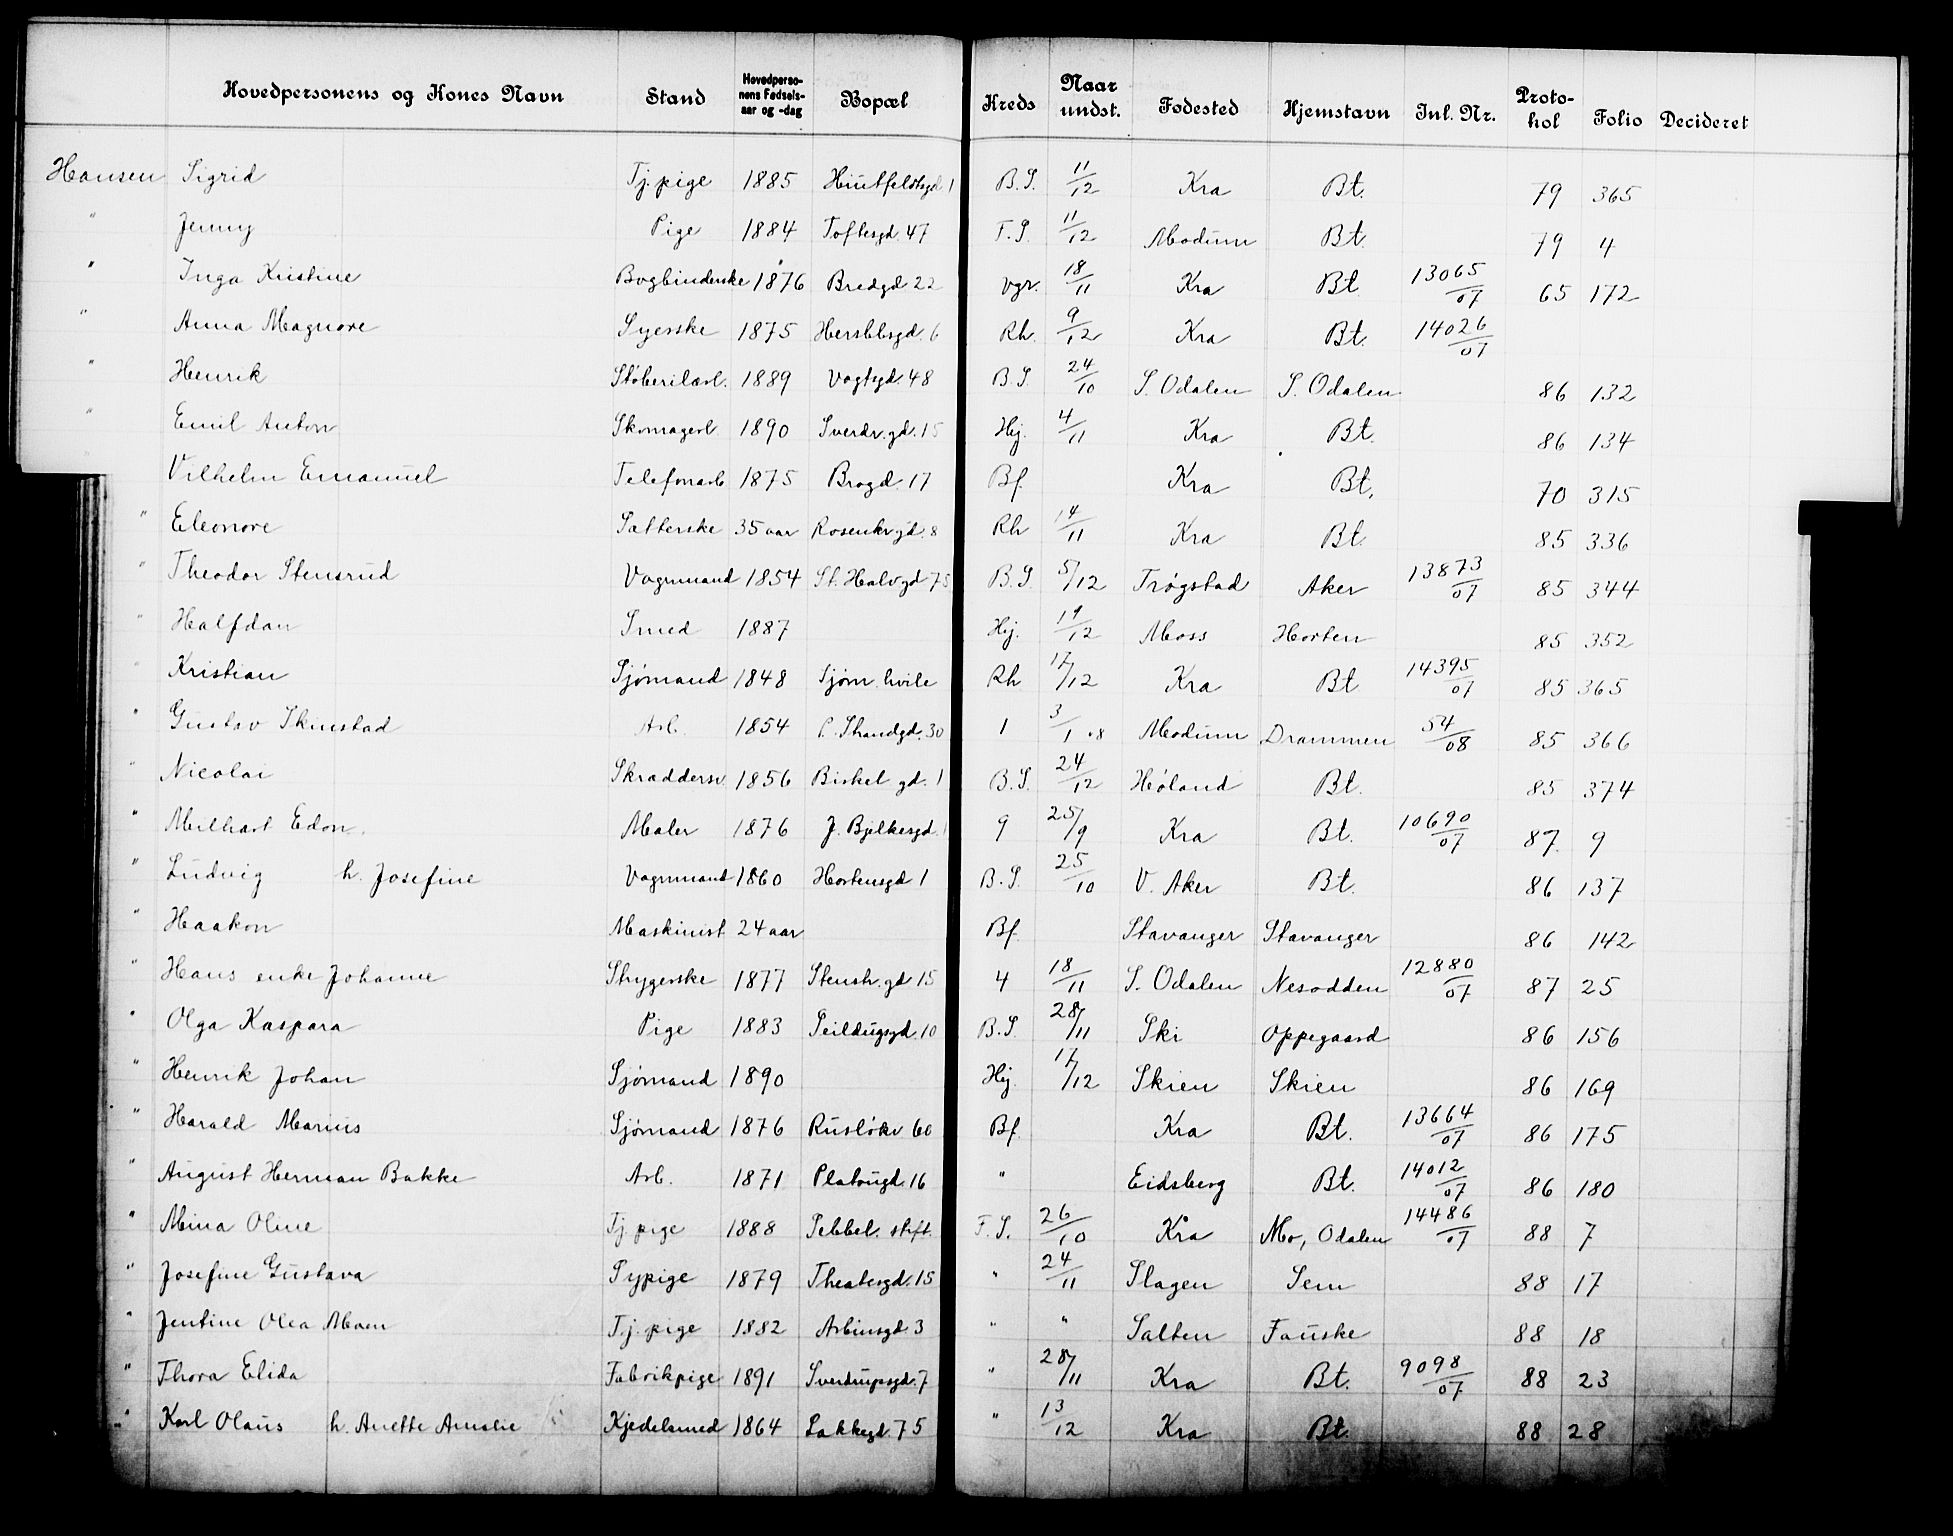 Hovedpersonens og Kones Navn Stand Hovedpersonens Fødselsaar og -dag Bopæl Kreds Naar undst. Fødested Hjemstavn Inl. Nr. Protokol Folio Decideret
Hansen Sigrid Tj. pige 1885 Huitfeldtsgd 1 B.S. 11/12 Kra Bt. 79 365
" Jenny Pige 1884 Toftesgd. 47 F.S. 11/12 Modum Bt. 79 4
" Inga Kristine Bogbinderske 1876 Bredgd 22 Vgr. 18/11 Kra Bt. 13065/07 65 172
" Anna Magnore Syerske 1875 Herslebsgd. 6 Rh. 9/12 Kra Bt. 14026/07
" Henrik Støberiarb. 1889 Vogtsgd. 48 B.S. 24/10 S. Odalen S. Odalen 86 132
" Emil Anton Skomagerl. 1890 Sverdr. gd. 15 Hj. 4/11 Kra Bt. 86 134
Vilhelm Emanuel Telefonarb 1875 Brogd. 17 Bf. Kra Bt. 70 315
" Eleonore Sætterske 35 aar Rosenkr gd. 8 Rh 14/11 Kra Bt. 85 336
" Theodor Stensrud Vognmand 1854 St. Halvgd 75 B.S. 5/12 Trøgstad Aker 13873/07 85 344
" Halfdan Smed 1887 Hj. 19/12 Moss Horten 85 352
" Kristian Sjømand 1848 Sjøm. hvile Rh 17/12 Kra Bt 14395/07 85 365
" Gustav Skinstad Arb. 1854 C. Strandgd. 30 1 3/1 08 Modum Drammen 54/08 85 366
" Nicolai Skræddersv. 1856 Biskel gd. 1 B.S. 24/12 Høland Bt. 85 374
" Milhart Edon. Maler 1876 J. Bjelkesgd. 1 9 25/9 Kra Bt. 10690/07 87. 9
" Ludvig h. Josefine Vognmand 1860 Hortensgd 1 B.S. 25/10 V. Aker Bt. 86 137
" Haakon Maskinist 24 aar Bf. Stavanger Stavanger 86 142
" Hans enke Johanne Strygerske 1877 Stenstr. gd 15 4 18/11 S. Odalen Nesodden 12880/07 87 25
" Olga Kaspara Pige 1883 Seildugsgd. 10 B.S. 28/11 Ski Oppegaard 86 156
" Henrik Johan Sjømand 1890 Hj. 17/12 Skien Skien 86 169
" Harald Marius Sjømand 1876 Rusløkv 60 Bf. Kra Bt. 13664/07 86 175
" August Herman Bakke Arb. 1871 Platougd. 16 " Eidsberg Bt. 14012/07 86 180
" Mina Oline Tj. pige 1888 Sebbel. stift. F.S. 26/10 Kra Mo, Odalen 14486/07 88 7
" Josefine Gustava Sypige 1879 Theatergd. 15 " 24/11 Slagen Sem 88 17
" Jentine Olea Moen Tj. pige 1882 Arbinsgd 3 " " Salten Fauske 88 18
" Thora Elida Fabrikpige 1891 Sverdrupsgd. 7 " 28/11 Kra Bt. 9098/07 88 23
" Karl Olaus h. Anette Amalie Kjedelsmed 1864 Lakkegd. 75 " 13/12 Kra Bt. 88 28